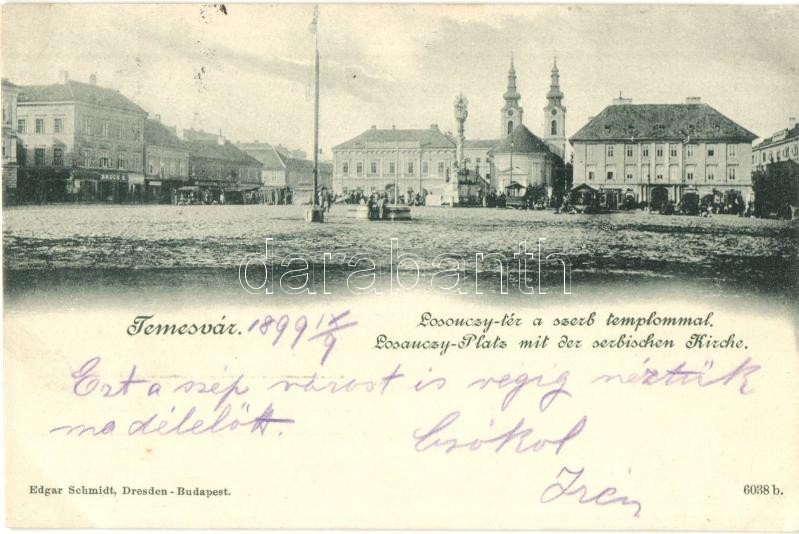 darabanth
Temesvár. 1899 IX/9
Losonczy-tér a szerb templommal.
Losonczy-Platz mit der serbischen Kirche.
Ezt a szép várost is végig néztük
ma délelőtt.
Csókol
Irén
Edgar Schmidt, Dresden - Budapest.
6038 b.